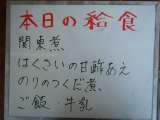 本日の給食
関東煮
はくさいの甘酢あえ
のりのつくだ煮
ご飯 牛乳